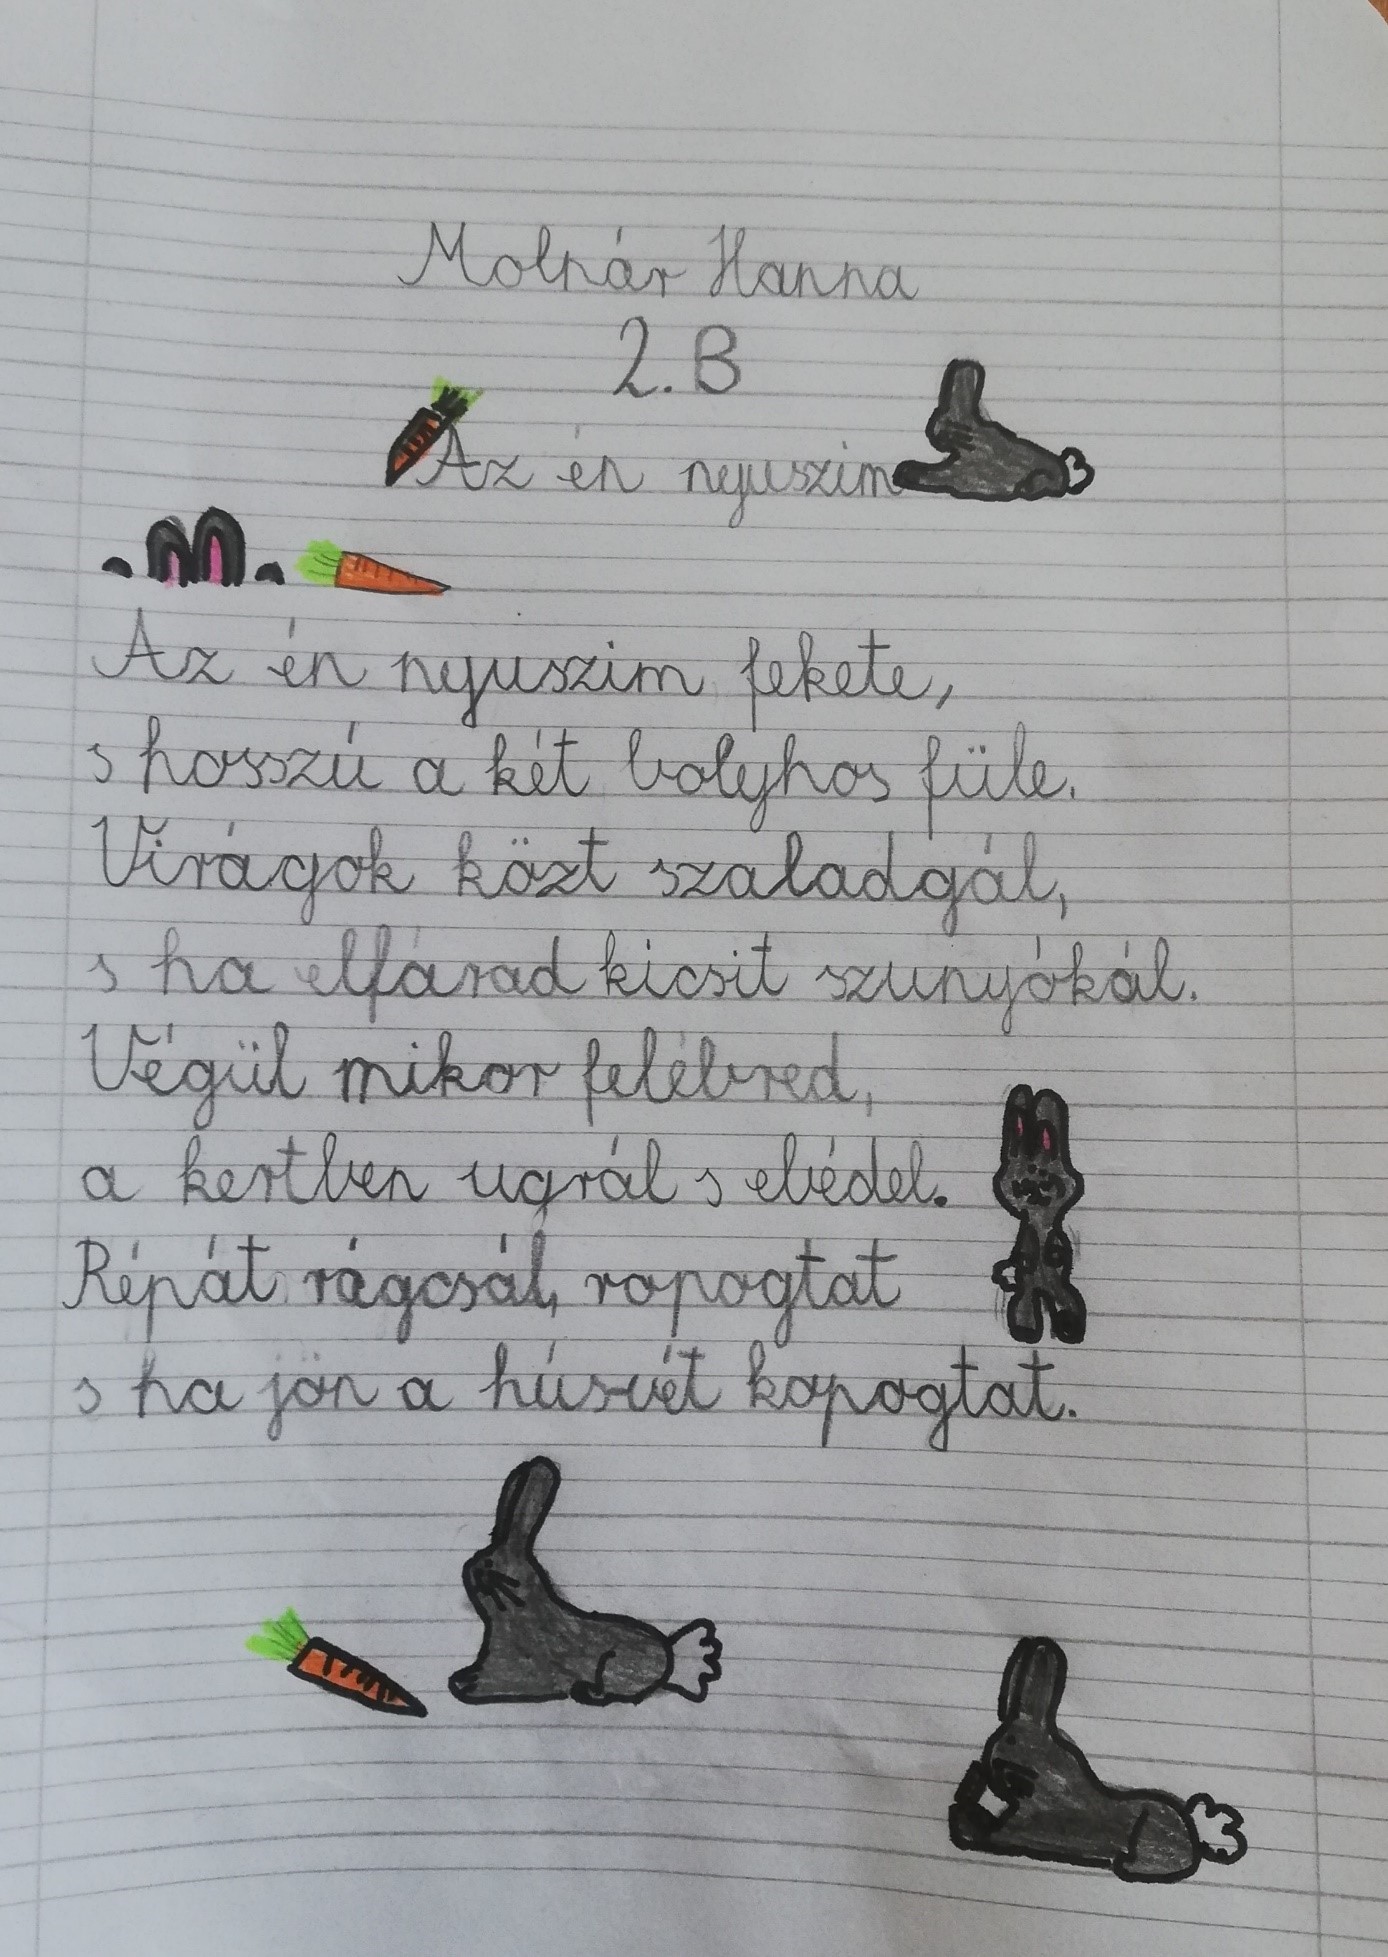 Molnár Hanna
2. B
Az én nyuszim
Az én nyuszim fekete,
s hosszú a két bolyhos füle.
Virágok közt szaladgál,
s ha elfárad kicsit szunyókál.
Végül mikor felébred,
a kertben ugrál s ebédel.
Répát rágcsál, ropogtat
s ha jön a húsvét kopogtat.